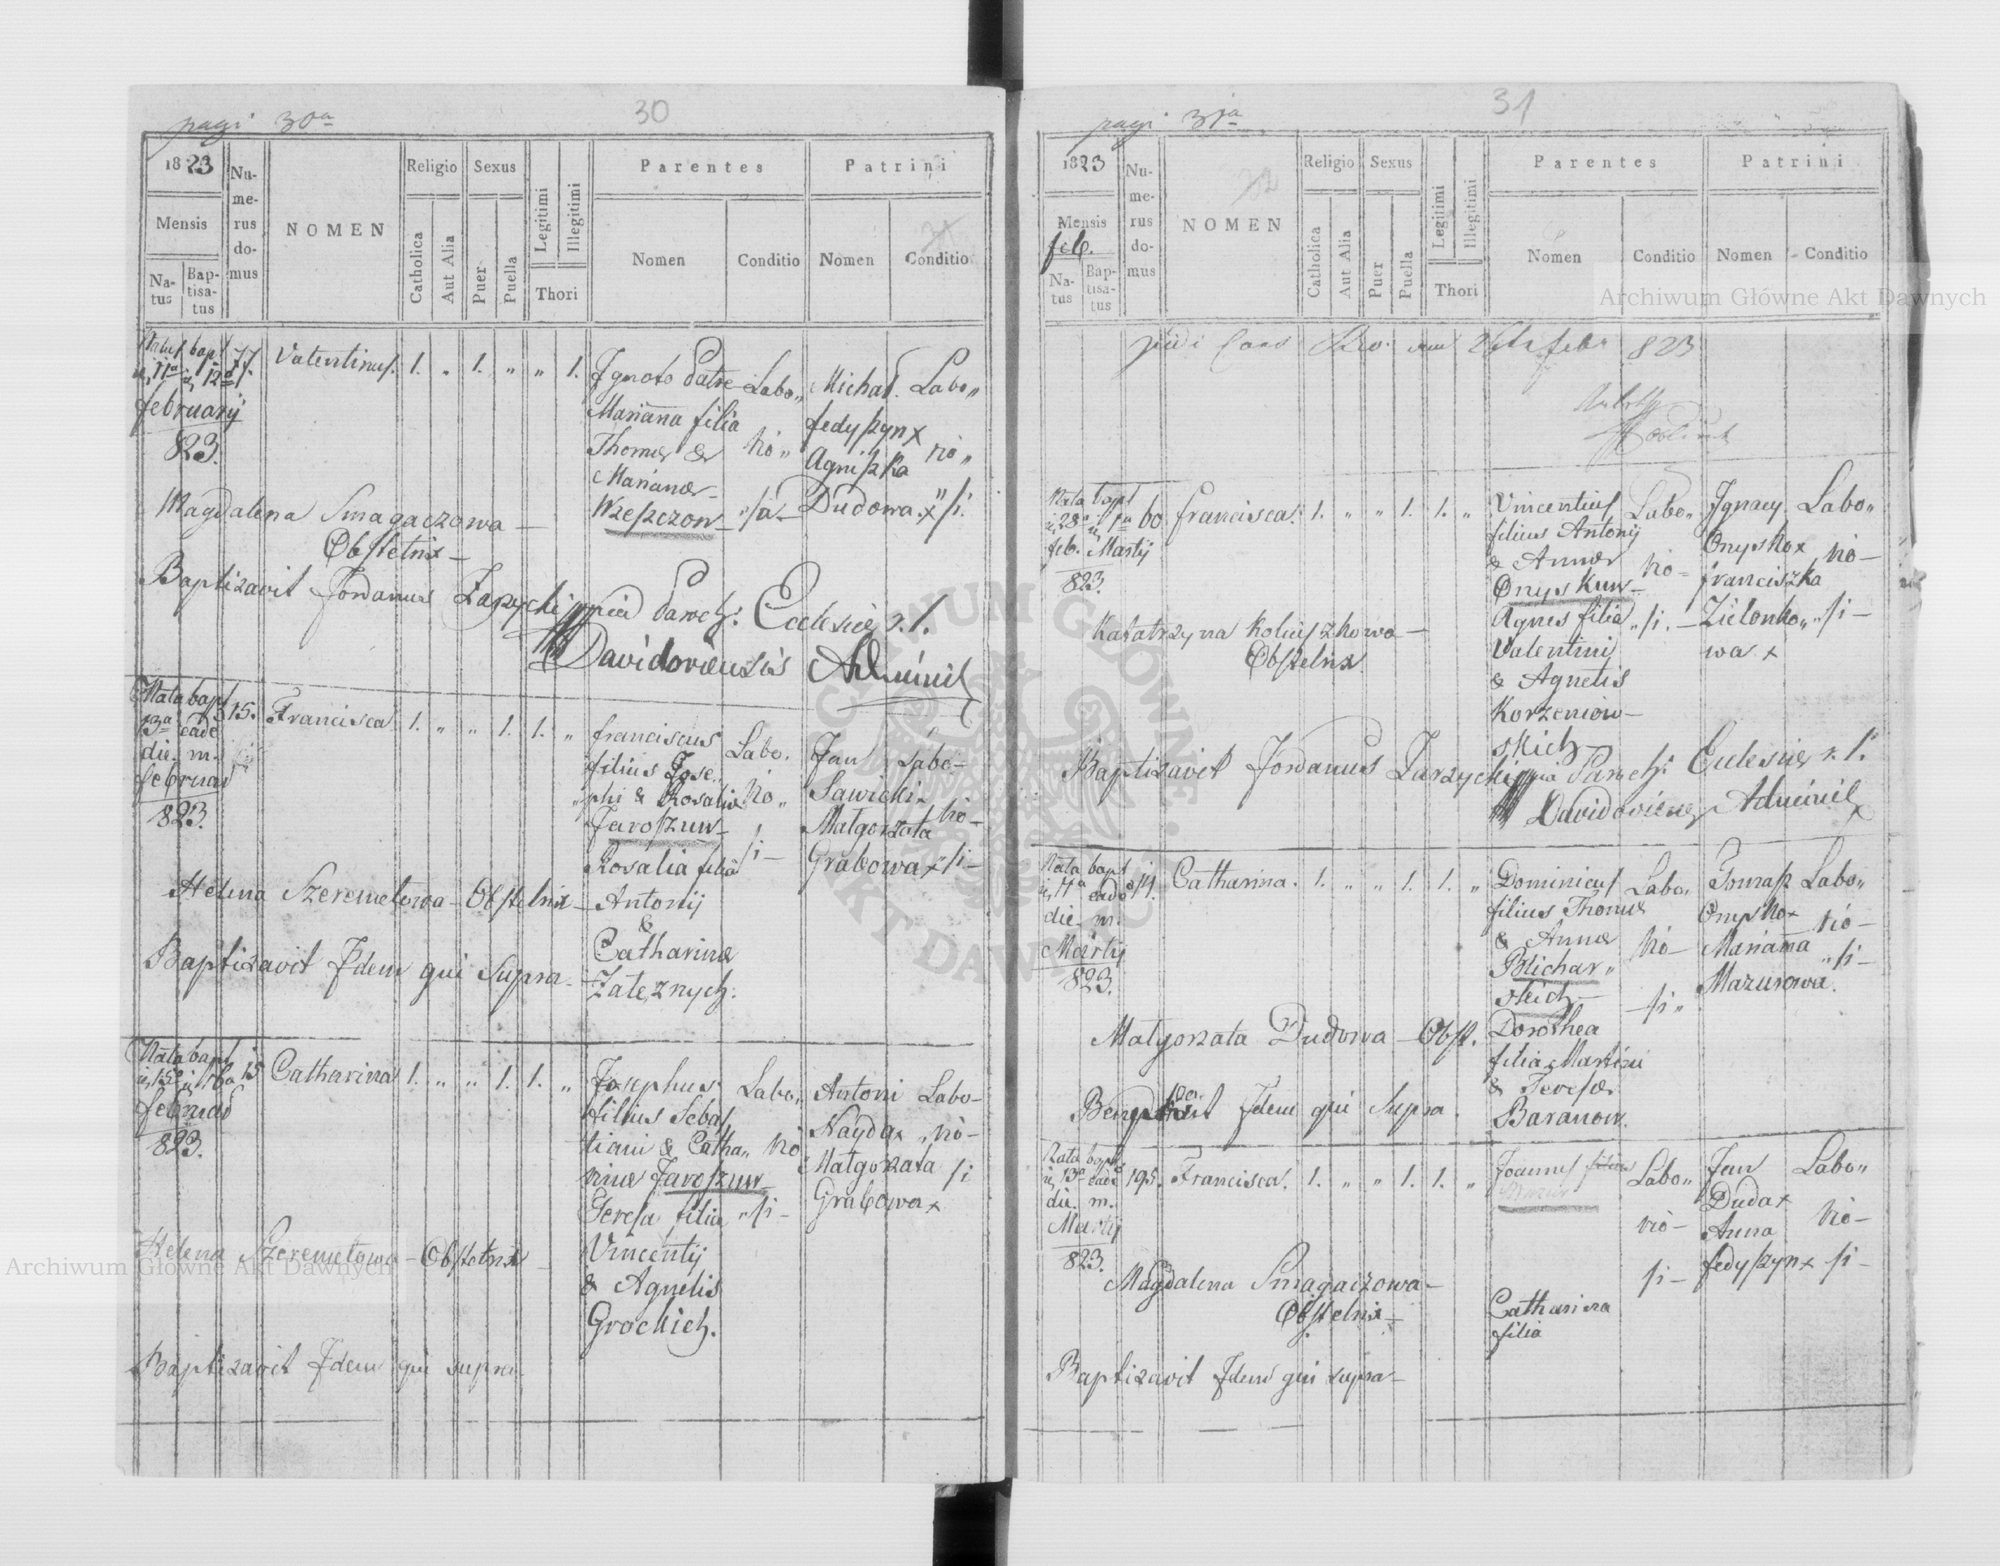 pagi 30a
30
1823
Numerus domus
NOMEN
Religio
Sexus
Legitimi
Illegitimi
Parentes
Patrini
Mensis
Catholica
Aut Alia
Puer
Puella
Thori
Nomen
Conditio
Nomen
Conditio
Natus
Baptisatus
Natus bapt 77. Valentinus. 1. „ 1. „ „ 1. Ignoto Patre Labo„ Michał Labo„
11a 12a
february Marianna filia fedyszyn x
823. Thomæ & rio„ Agniszka rio„
Mariannæ
Magdalena Smagaczowa — Wzeszczow si — Dudowa. x „si.
Obstetrix —
Baptizavit Jordanus Zarzycki Parch: Ecclesiæ r. l.
Davidoviensis Administ
Nata bapt 15. Francisca 1. „ „ 1. 1. „ franciscus Labo. Jan Labo—
13a eade filius Jose„
die. m. „phi & Rosaliæ rio„ Sawicki rio—
februar Jaroszuw— Małgorzata
823. Rosalia filia si— Grabowa x si—
Helena Szeremetowa — Obstetrix — Antonij
&
Catharinæ
Baptizavit Idem qui supra — Zależnych.
Nata bapt 15 Catharina 1. „ „ 1. 1. „ Josephus Labo„ Antoni Labo—
15a 16a filius Sebas
februar tiani & Catha„ rio Nayda x „rio—
823. rinæ Jaroszuw Małgorzata si
Teresa filia „si— Grabowa x
Helena Szeremetowa — Obstetrix Vincentij
& Agnetis
Grockich.
Baptizavit Idem qui supra
pagi 31a
31
1823
Numerus domus
NOMEN
Religio
Sexus
Legitimi
Illegitimi
Parentes
Patrini
Mensis
feb.
Catholica
Aut Alia
Puer
Puella
Thori
Nomen
Conditio
Nomen
Conditio
Natus
Baptisatus
febr 823
Nata bapt 60 Francisca. 1. „ „ 1. 1. „ Vincentius Labo„ Ignacy Labo„
28a 1a filius Antonij
feb. Martij & Annæ rio— Onysko x rio—
823. Onyskuw— franciszka
Agnes filia „si.— Zielonko„ „si—
Katarzyna Koliuszkowa — Valentini wa x
Obstetrix & Agnetis
Korzeniow—
skich—
Baptizavit Jordanus Zarzycki Parch: Ecclesiæ r. l.
Davidoviens Administ
Nata bapt 14. Catharina. 1. „ „ 1. 1. „ Dominicus Labo„ Tomasz Labo„
11a eade filius Thomæ Onysko x
die m. & Annæ rio— Marianna rio—
Martij Michar„ Mazurowa. „si—
823. skich— si„
Małgorzata Dudowa — Obst. Dorothea
filia Martini
& Teresæ
Idem qui supra. Baranow.
Nata bapt 195. Francisca. 1. „ „ 1. 1. „ Joannes Labo„ Jan Labo„
13a eade Mazur Duda x
die. m. rio— Anna rio—
Martij fedyszyn x si—
823. Magdalena Smagaczowa — si—
Obstetrix — Catharina
filia
Baptizavit Idem qui supra —
Archiwum Główne Akt Dawnych
Archiwum Główne Akt Dawnych
ARCHIWUM GŁÓWNE AKT DAWNYCH